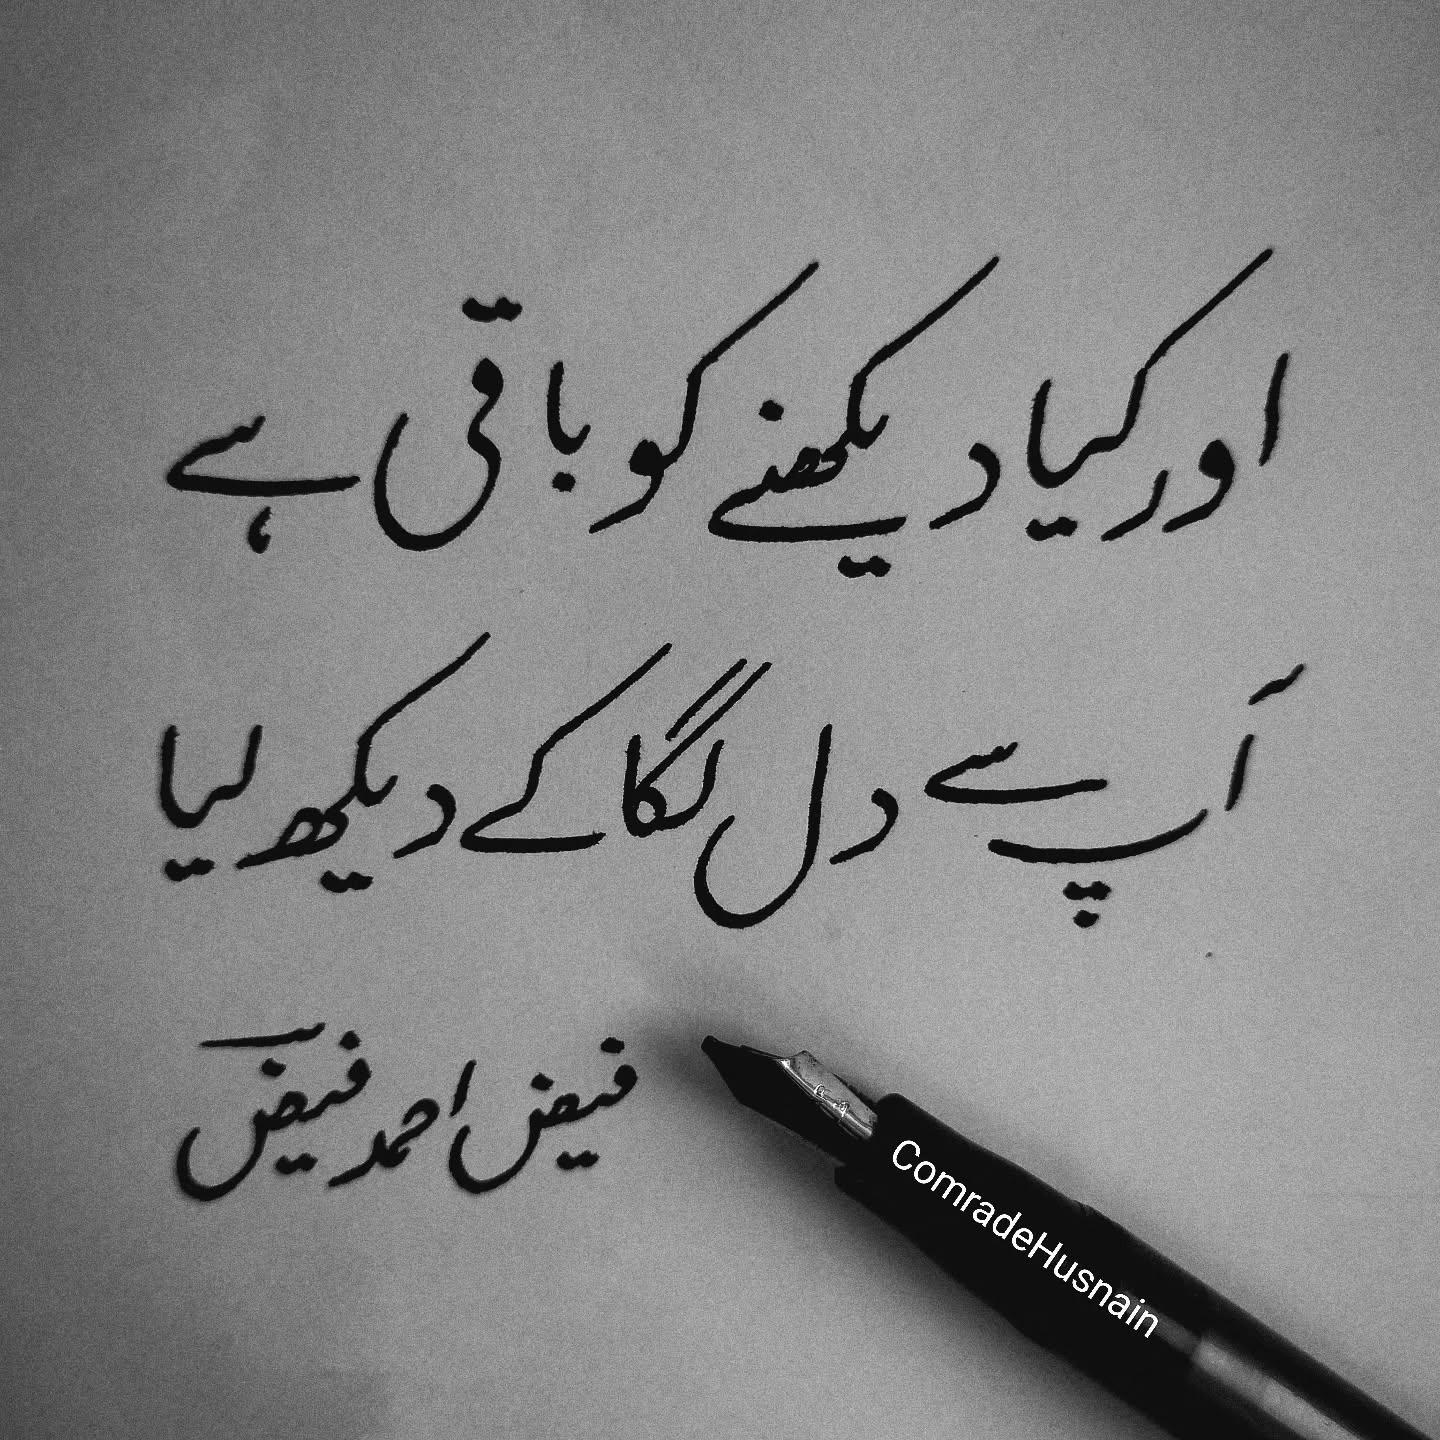 اور کیا دیکھنے کو باقی ہے
آپ سے دل لگا کے دیکھ لیا
فیض احمد فیضؔ
ComradeHusnain